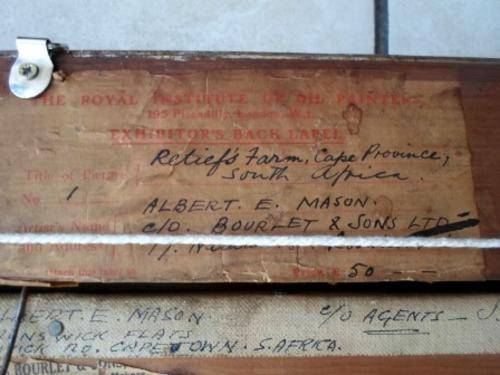 THE ROYAL INSTITUTE OF OIL PAINTERS,
195 Piccadilly, London, W.1.
EXHIBITOR'S BACK LABEL
Title of Picture Retief's Farm, Cape Province,
South Africa.
No. 1
Artist's Name ALBERT E. MASON.
C/O. BOURLET & SONS LTD.
17,
Attach this label Price £ 50 — —
ALBERT. E. MASON. C/O AGENTS — J.
FLATS
RD. CAPETOWN. S. AFRICA.
BOURLET & SONS